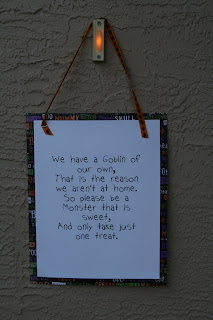 We have a Goblin of
our own,
That is the reason
we aren't at home.
So please be a
Monster that is
sweet,
And only take just
one treat.